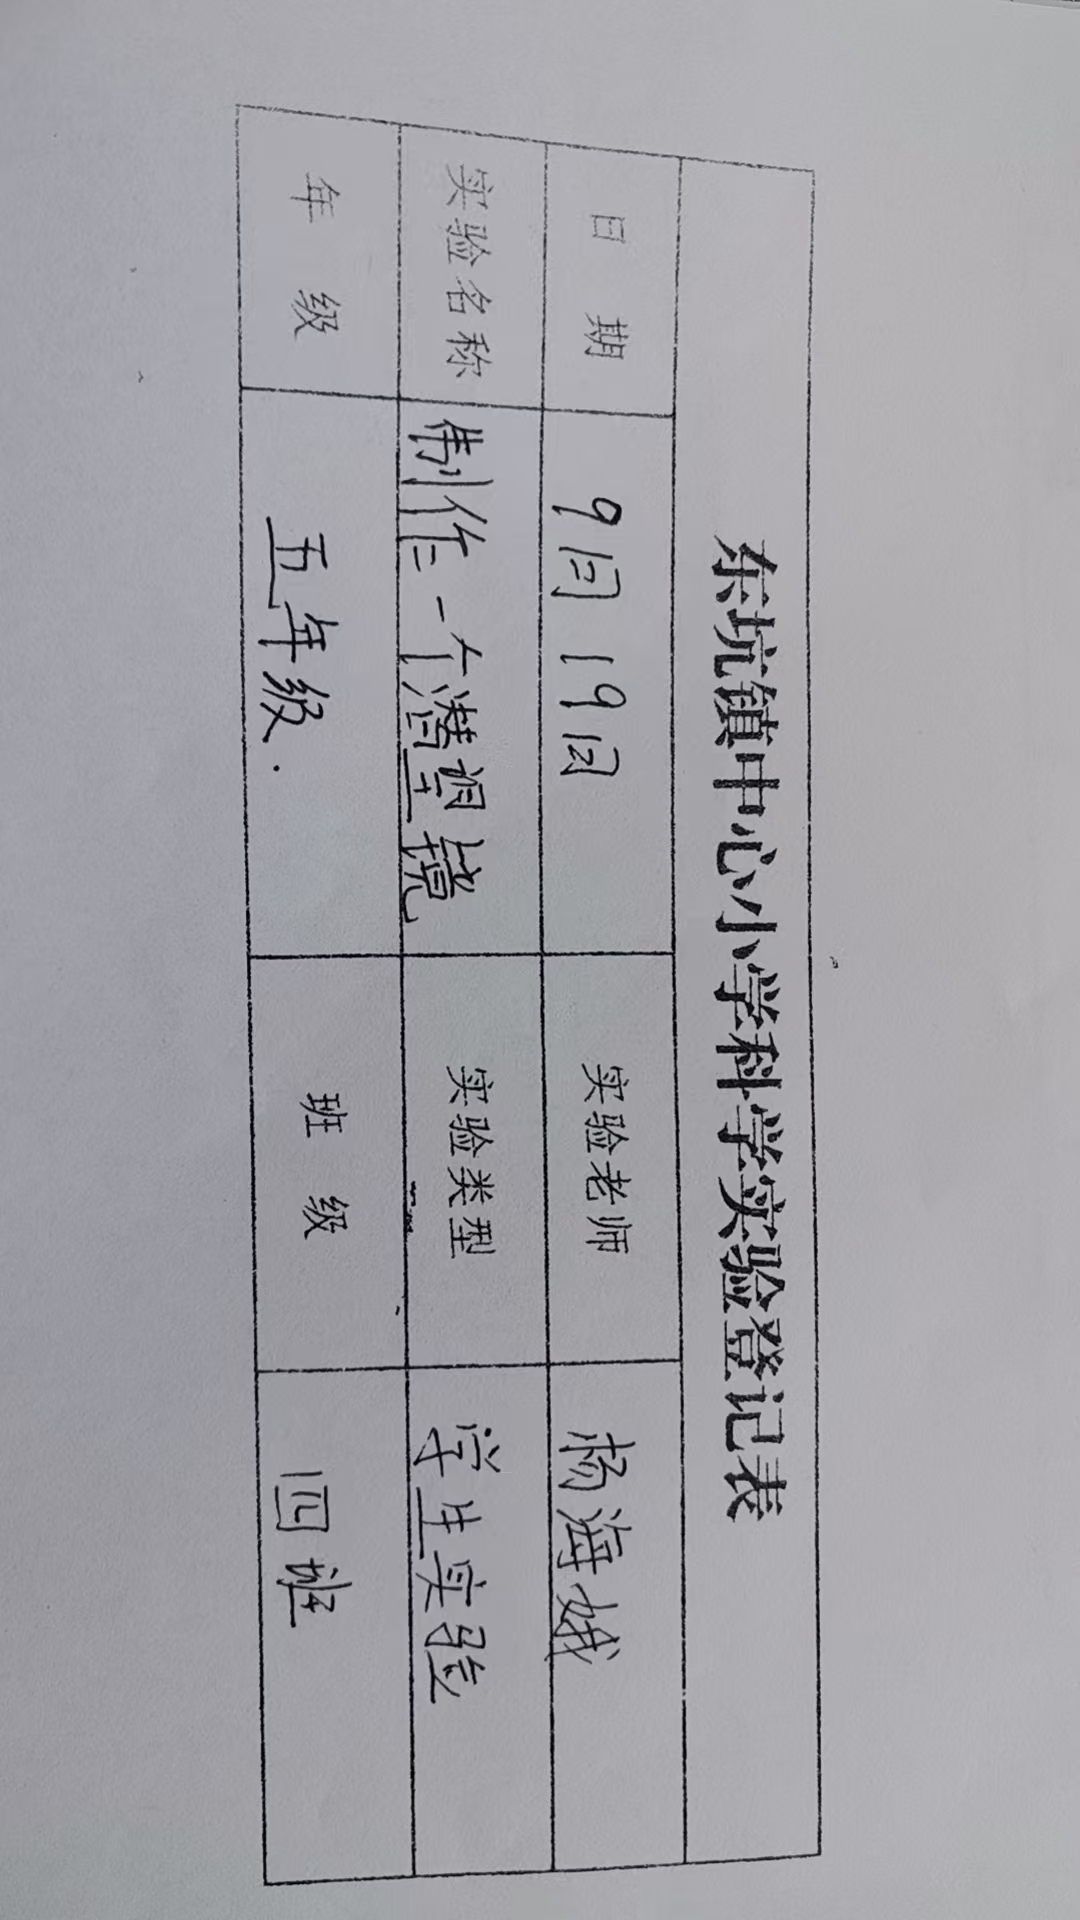 东坑镇中心小学科学实验登记表
日期 9月19日 实验老师 杨海娥
实验名称 制作一个潜望境 实验类型 学生实验
年级 五年级. 班级 四班